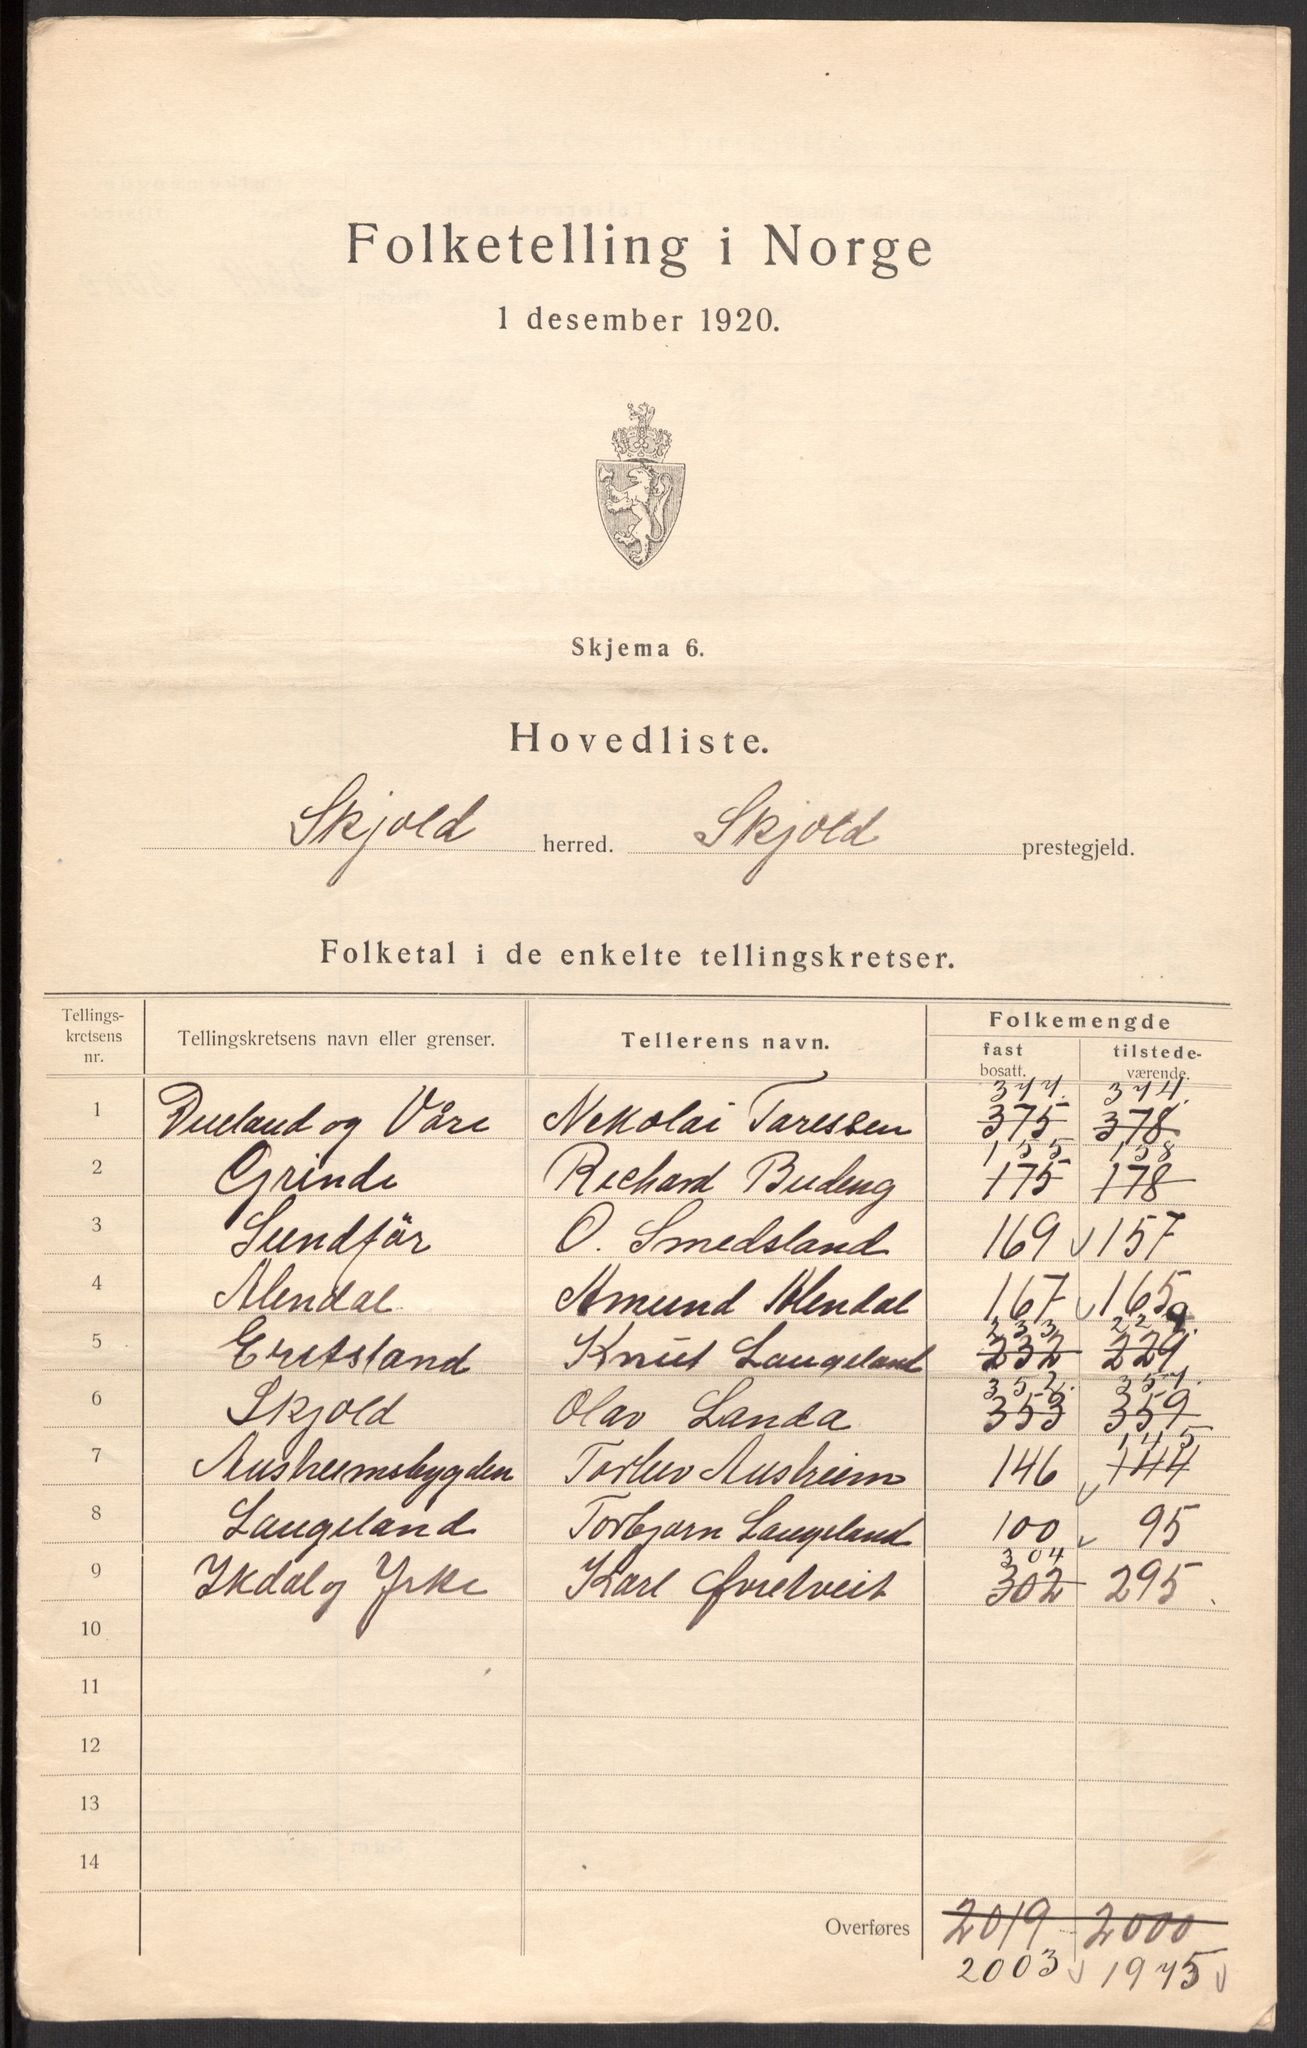 Folketelling i Norge
1 desember 1920.
Skjema 6.
Hovedliste.
Skjold herred. Skjold prestegjeld.
Folketal i de enkelte tellingskretser.
Tellings-
kretsens
nr.
Tellingskretsens navn eller grenser.
Tellerens navn.
Folkemengde
fast
bosatt.
tilstede-
værende.
377. 374.
1 Dueland og Våre Nekolai Taressen 375 378
155 158
2 Grinde Richard Budeng 175 178
3 Sundför O. Smedsland 169 157
4 Alendal Amund Alendal 167 165
233 229.
5 Eretsland Knut Langeland 232 229
352. 357.
6 Skjold Olav Landa 353 359
145
7 Austreimsbygden Torleiv Austreim 146 144
8 Langeland Torbjørn Langeland 100 95
304
9 Ykdal og Yrke Karl Øvretveit 302 295
10
11
12
13
14
Overføres 2019 2000
2003 1975